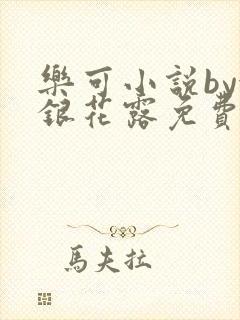 樂可小說by
銀花露免費
馬夫拉